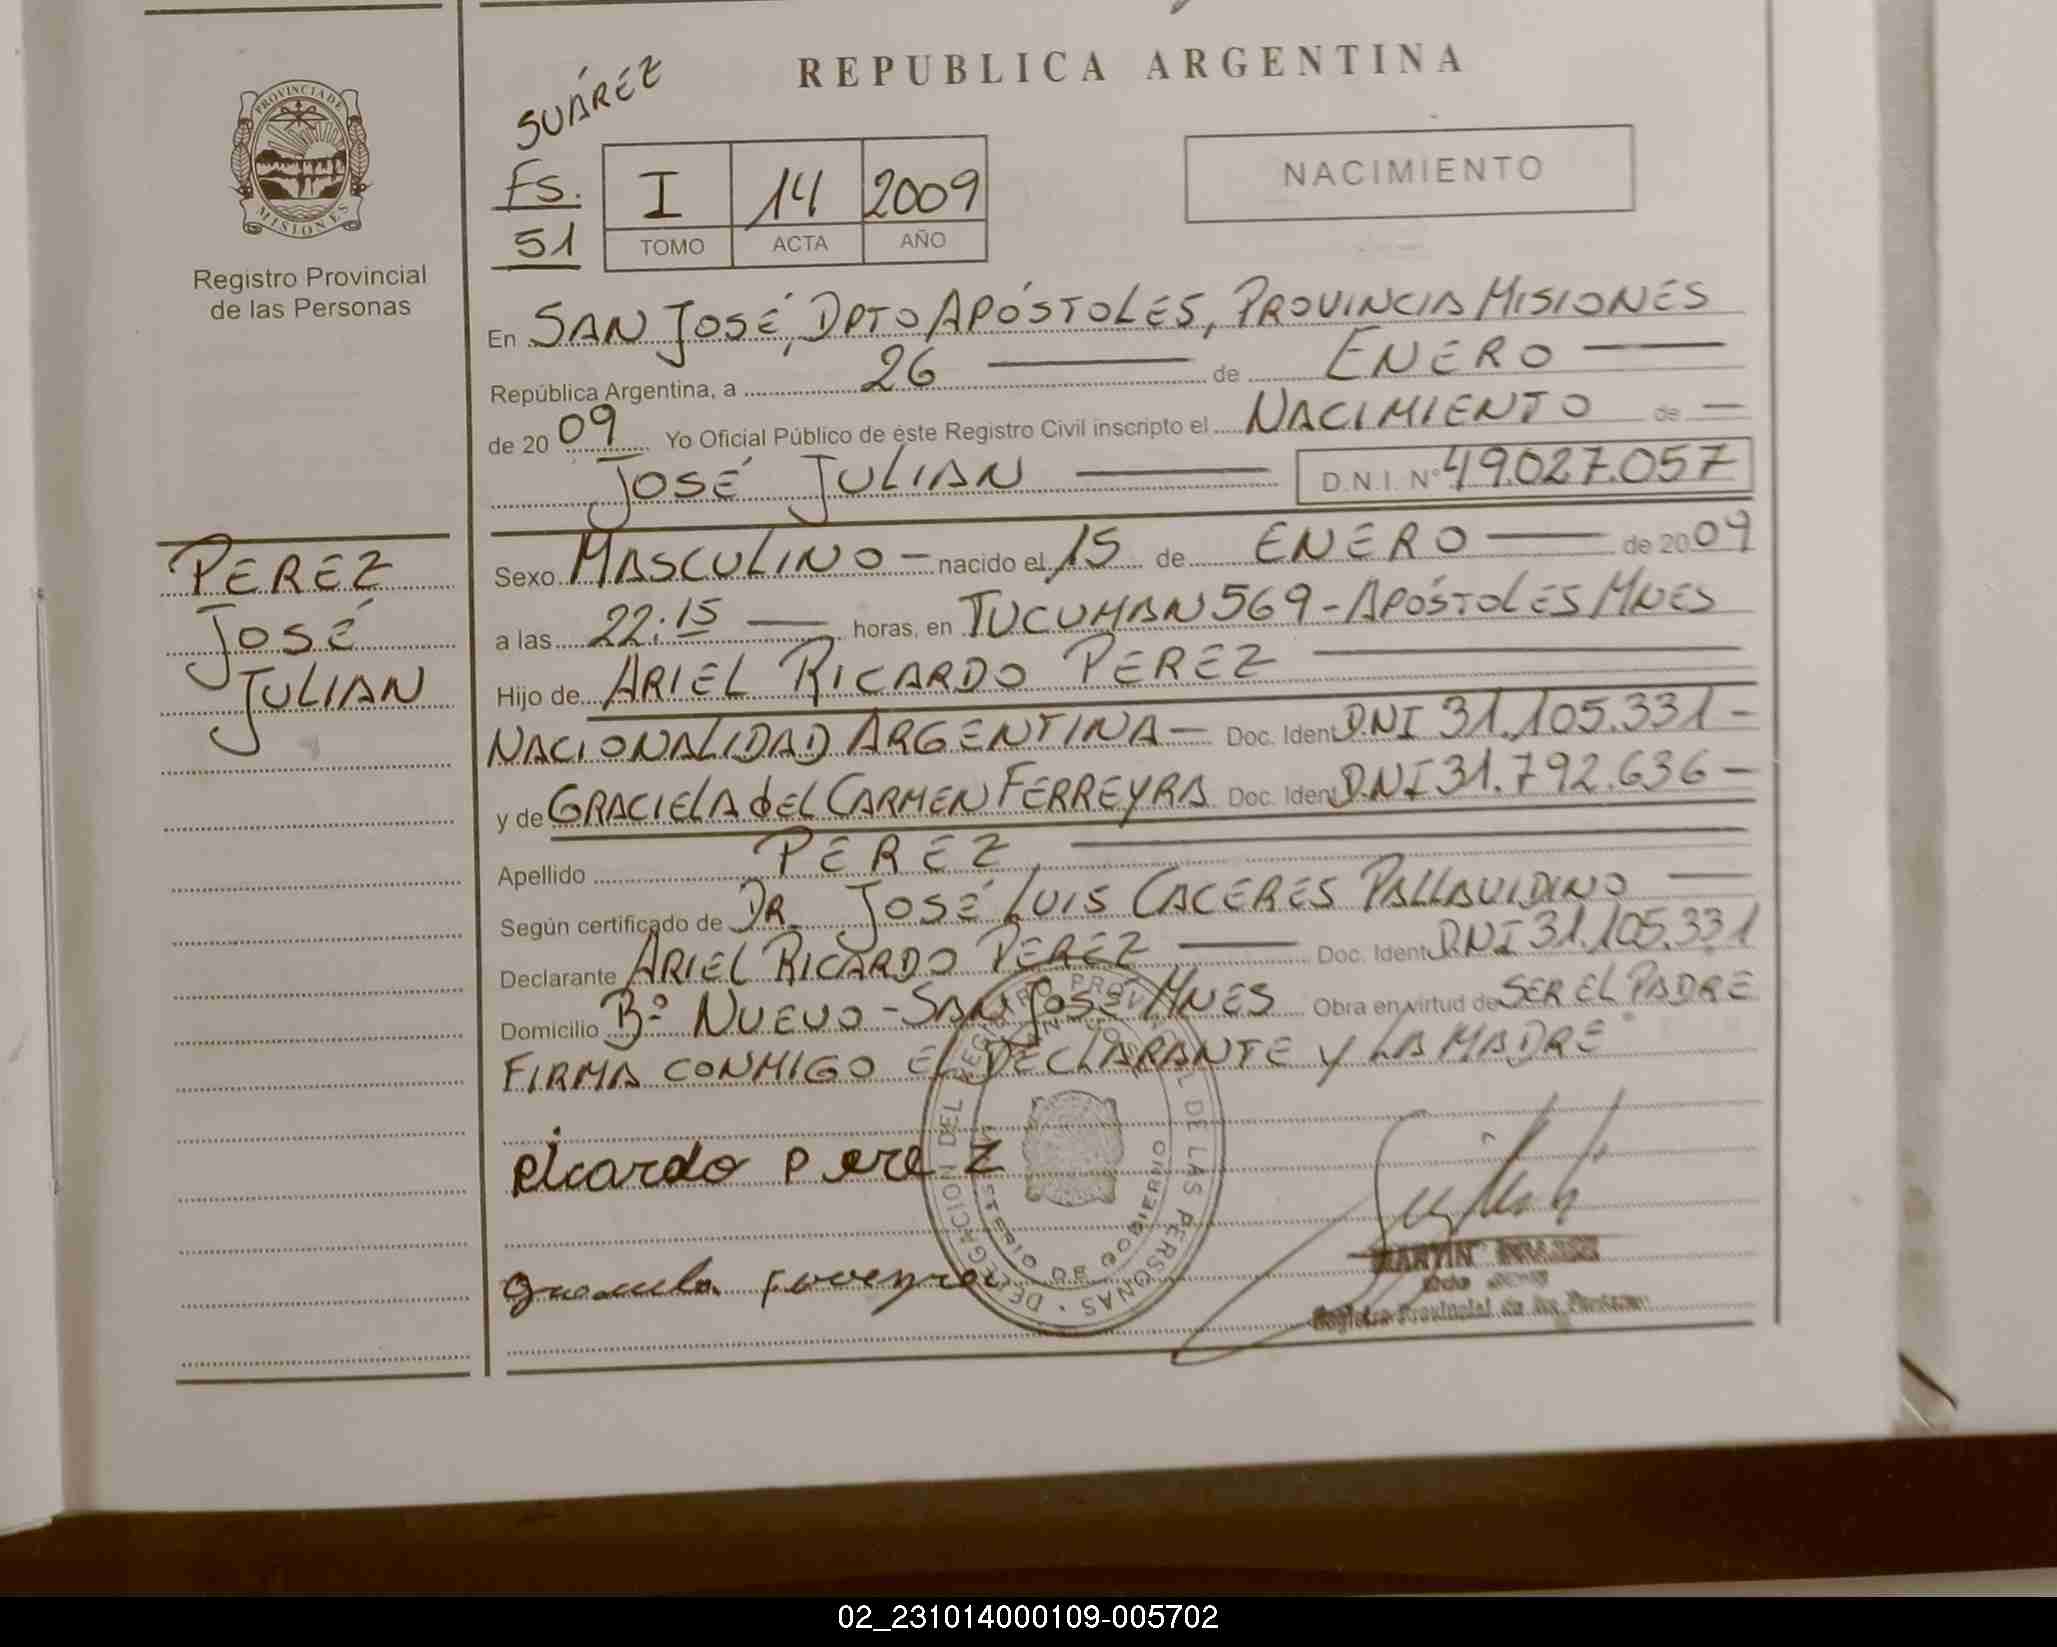 REPUBLICA ARGENTINA
PROVINCIA DE
MISIONES
Registro Provincial
de las Personas
SUÁREZ
Fs.
51
I 14 2009
TOMO ACTA AÑO
NACIMIENTO
En SAN JOSÉ, DPTO APÓSTOLES, PROVINCIA MISIONES
República Argentina, a 26 de ENERO
de 2009 Yo Oficial Público de éste Registro Civil inscripto el NACIMIENTO de
JOSÉ JULIAN D.N.I. Nº 49.027.057
PEREZ
JOSÉ
JULIAN
Sexo MASCULINO nacido el 15 de ENERO de 2009
a las 22:15 horas, en TUCUMAN 569 - APÓSTOLES MNES
Hijo de ARIEL RICARDO PEREZ
NACIONALIDAD ARGENTINA Doc. Ident DNI 31.105.331
y de GRACIELA dEL CARMEN FERREYRA Doc. Ident DNI 31.792.636
Apellido PEREZ
Según certificado de DR JOSÉ LUIS CACERES PALLAVIDINO
Declarante ARIEL RICARDO PEREZ Doc. Ident DNI 31.105.331
Domicilio Bº NUEVO - SAN JOSÉ MNES Obra en virtud de SER EL PADRE
FIRMA CONMIGO EL DECLARANTE Y LA MADRE
Ricardo perez
DELEGACION DEL REGISTRO PROVINCIAL DE LAS PERSONAS
MINISTERIO DE GOBIERNO
MARTIN
Registro Provincial de las Personas
02_231014000109-005702